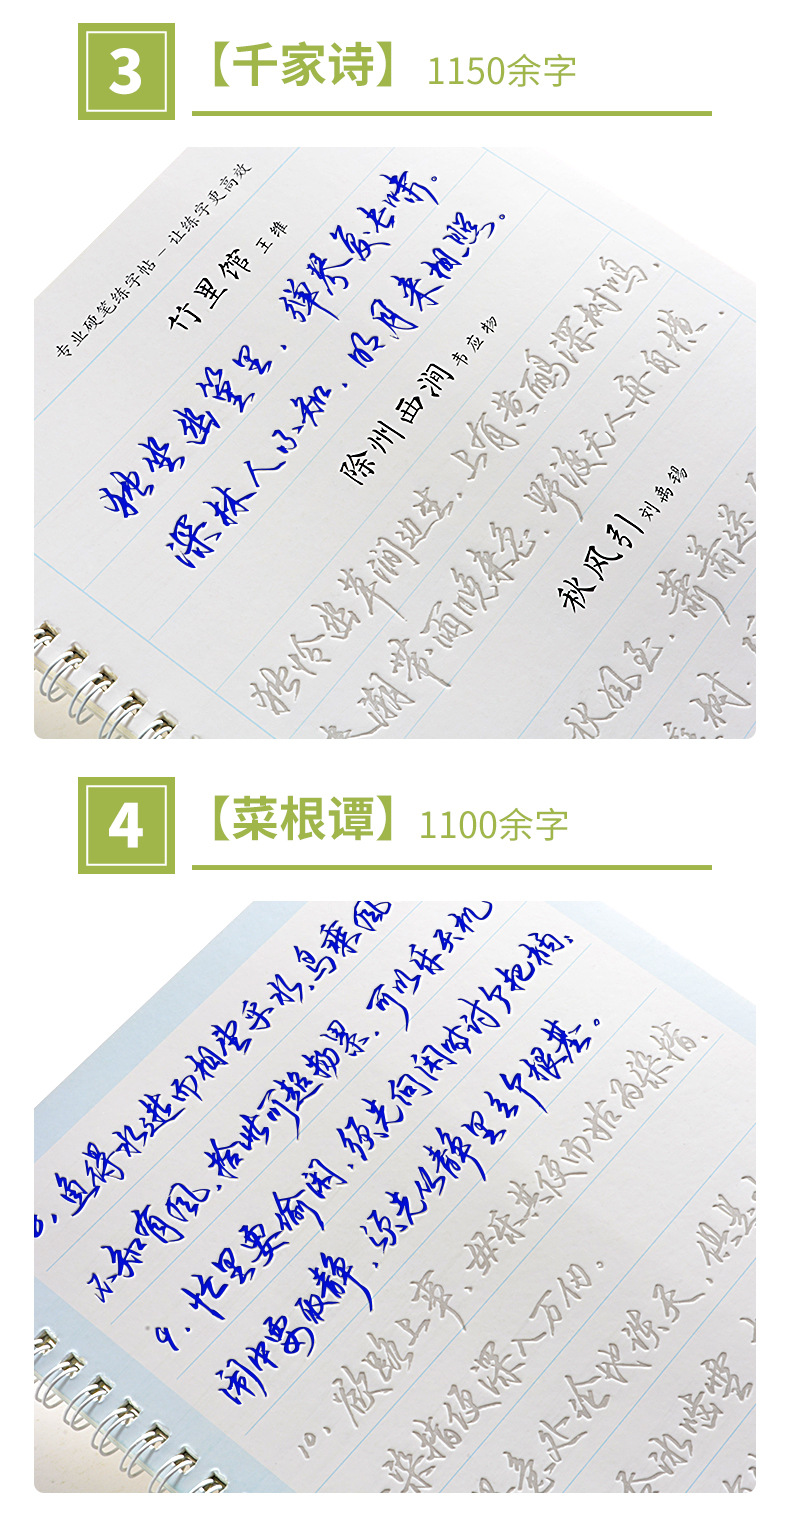 3
【千家诗】 1150余字
专业硬笔练字帖 - 让练字更高效
竹里馆 王维
独坐幽篁里，弹琴复长啸。
深林人不知，明月来相照。
滁州西涧 韦应物
独怜幽草涧边生，上有黄鹂深树鸣，
潮带雨晚来急，野渡无人舟自横，
秋风引 刘禹锡
秋风至，萧萧送
树，
4
【菜根谭】 1100余字
8、鱼得水逝而相忘乎水，鸟乘风
不知有风，拾此可超物累，可以乐天机
9、忙里要偷闲，须先向闲时讨个把柄，
闹中要取静，须先从静里立个根基。
10、欲路上事，毋乐其便而姑为染指，
染指便深入万仞。